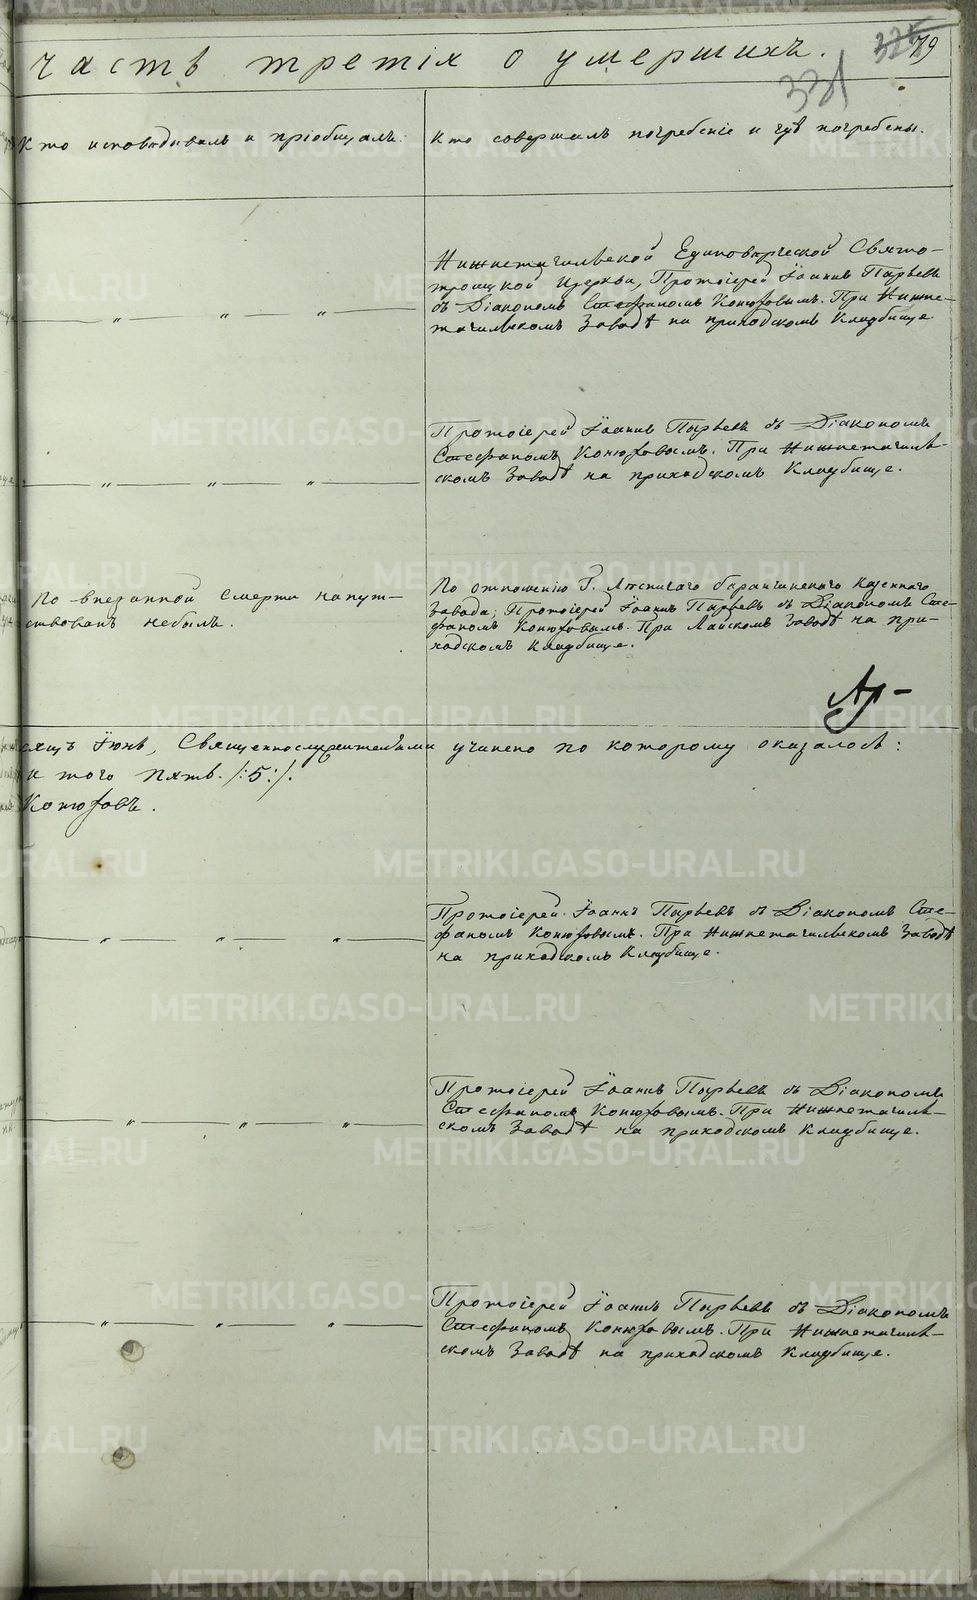 часть третія о умершихъ.
79
331
Кто исповѣдывалъ и пріобщалъ.
Кто совершалъ погребеніе и гдѣ погребены.
Нижнетагильской Единовѣрческой Свято-
троицкой Церкви, Протоіерей Іоаннъ Пырьевъ
съ Діакономъ Стефаномъ Конюховымъ. При Нижне-
тагильскомъ Заводѣ на приходскомъ Кладбище.
— „ — „ — „ —
Протоіерей Іоаннъ Пырьевъ съ Діакономъ
Стефаномъ Конюховымъ. При Нижнетагиль-
скомъ Заводѣ на приходскомъ Кладбище.
— „ — „ — „ —
По внезапной смерти напут-
ствованъ небылъ.
По отношенію Г. Лѣсничаго Баранчинскаго Казеннаго
Завода, Протоіерей Іоаннъ Пырьевъ съ Діакономъ Сте-
фаномъ Конюховымъ. При Лайскомъ Заводѣ на при-
ходскомъ Кладбище.
сяцъ Іюнь, Священнослужительми учинено по которому оказалось:
и того пять ./:5:/.
Конюховъ.
Протоіерей Іоаннъ Пырьевъ съ Діакономъ Сте-
фаномъ Конюховымъ. При Нижнетагильскомъ Заводѣ
на приходскомъ Кладбище.
— „ — „ — „ —
Протоіерей Іоаннъ Пырьевъ съ Діакономъ
Стефаномъ Конюховымъ. При Нижнетагиль-
скомъ Заводѣ на приходскомъ Кладбище.
— „ — „ — „ —
Протоіерей Іоаннъ Пырьевъ съ Діакономъ
Стефаномъ Конюховымъ. При Нижнетагиль-
скомъ Заводѣ на приходскомъ Кладбище.
— „ — „ — „ —
METRIKI.GASO-URAL.RU